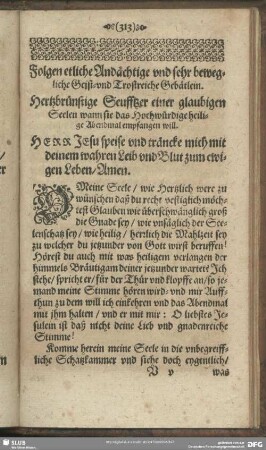 (313)
Folgen etliche Andächtige vnd sehr beweg-
liche Geist-vnd Trostreiche Gebätlein.
Hertzbrünstige Seufftzer einer glaubigen
Seelen wann sie das Hochwürdige heili-
ge Abendmal empfangen will.
HERR JEsu speise vnd träncke mich mit
deinem wahren Leib vnd Blut zum ewi-
gen Leben/Amen.
O Meine Seele/ wie Hertzlich were zu
wünschen daß du recht vestiglich möch-
test Glauben wie überschwänglich groß
die Gnade sey/ wie unsäglich der See-
lenschatz sey/ wie heilig/ herrlich die Mahlzeit sey
zu welcher du jetzunder von Gott wirst beruffen!
Hörest du auch mit was heiligem verlangen der
himmels Bräutigam deiner jetzunder wartet? Ich
stehe/ spricht er/ für der Thür vnd klopffe an/ so je-
mand meine Stimme hören wird/ vnd mir Auff-
thun zu dem will ich einkehren vnd das Abendmal
mit jhm halten/ vnd er mit mir: O liebstes Je-
sulein ist daß nicht deine Lieb vnd gnadenreiche
Stimme!
Komme herein meine Seele in die vnbegreiff-
liche Schatzkammer vnd siehe doch eygentlich/
V v was
SLUB
DFG